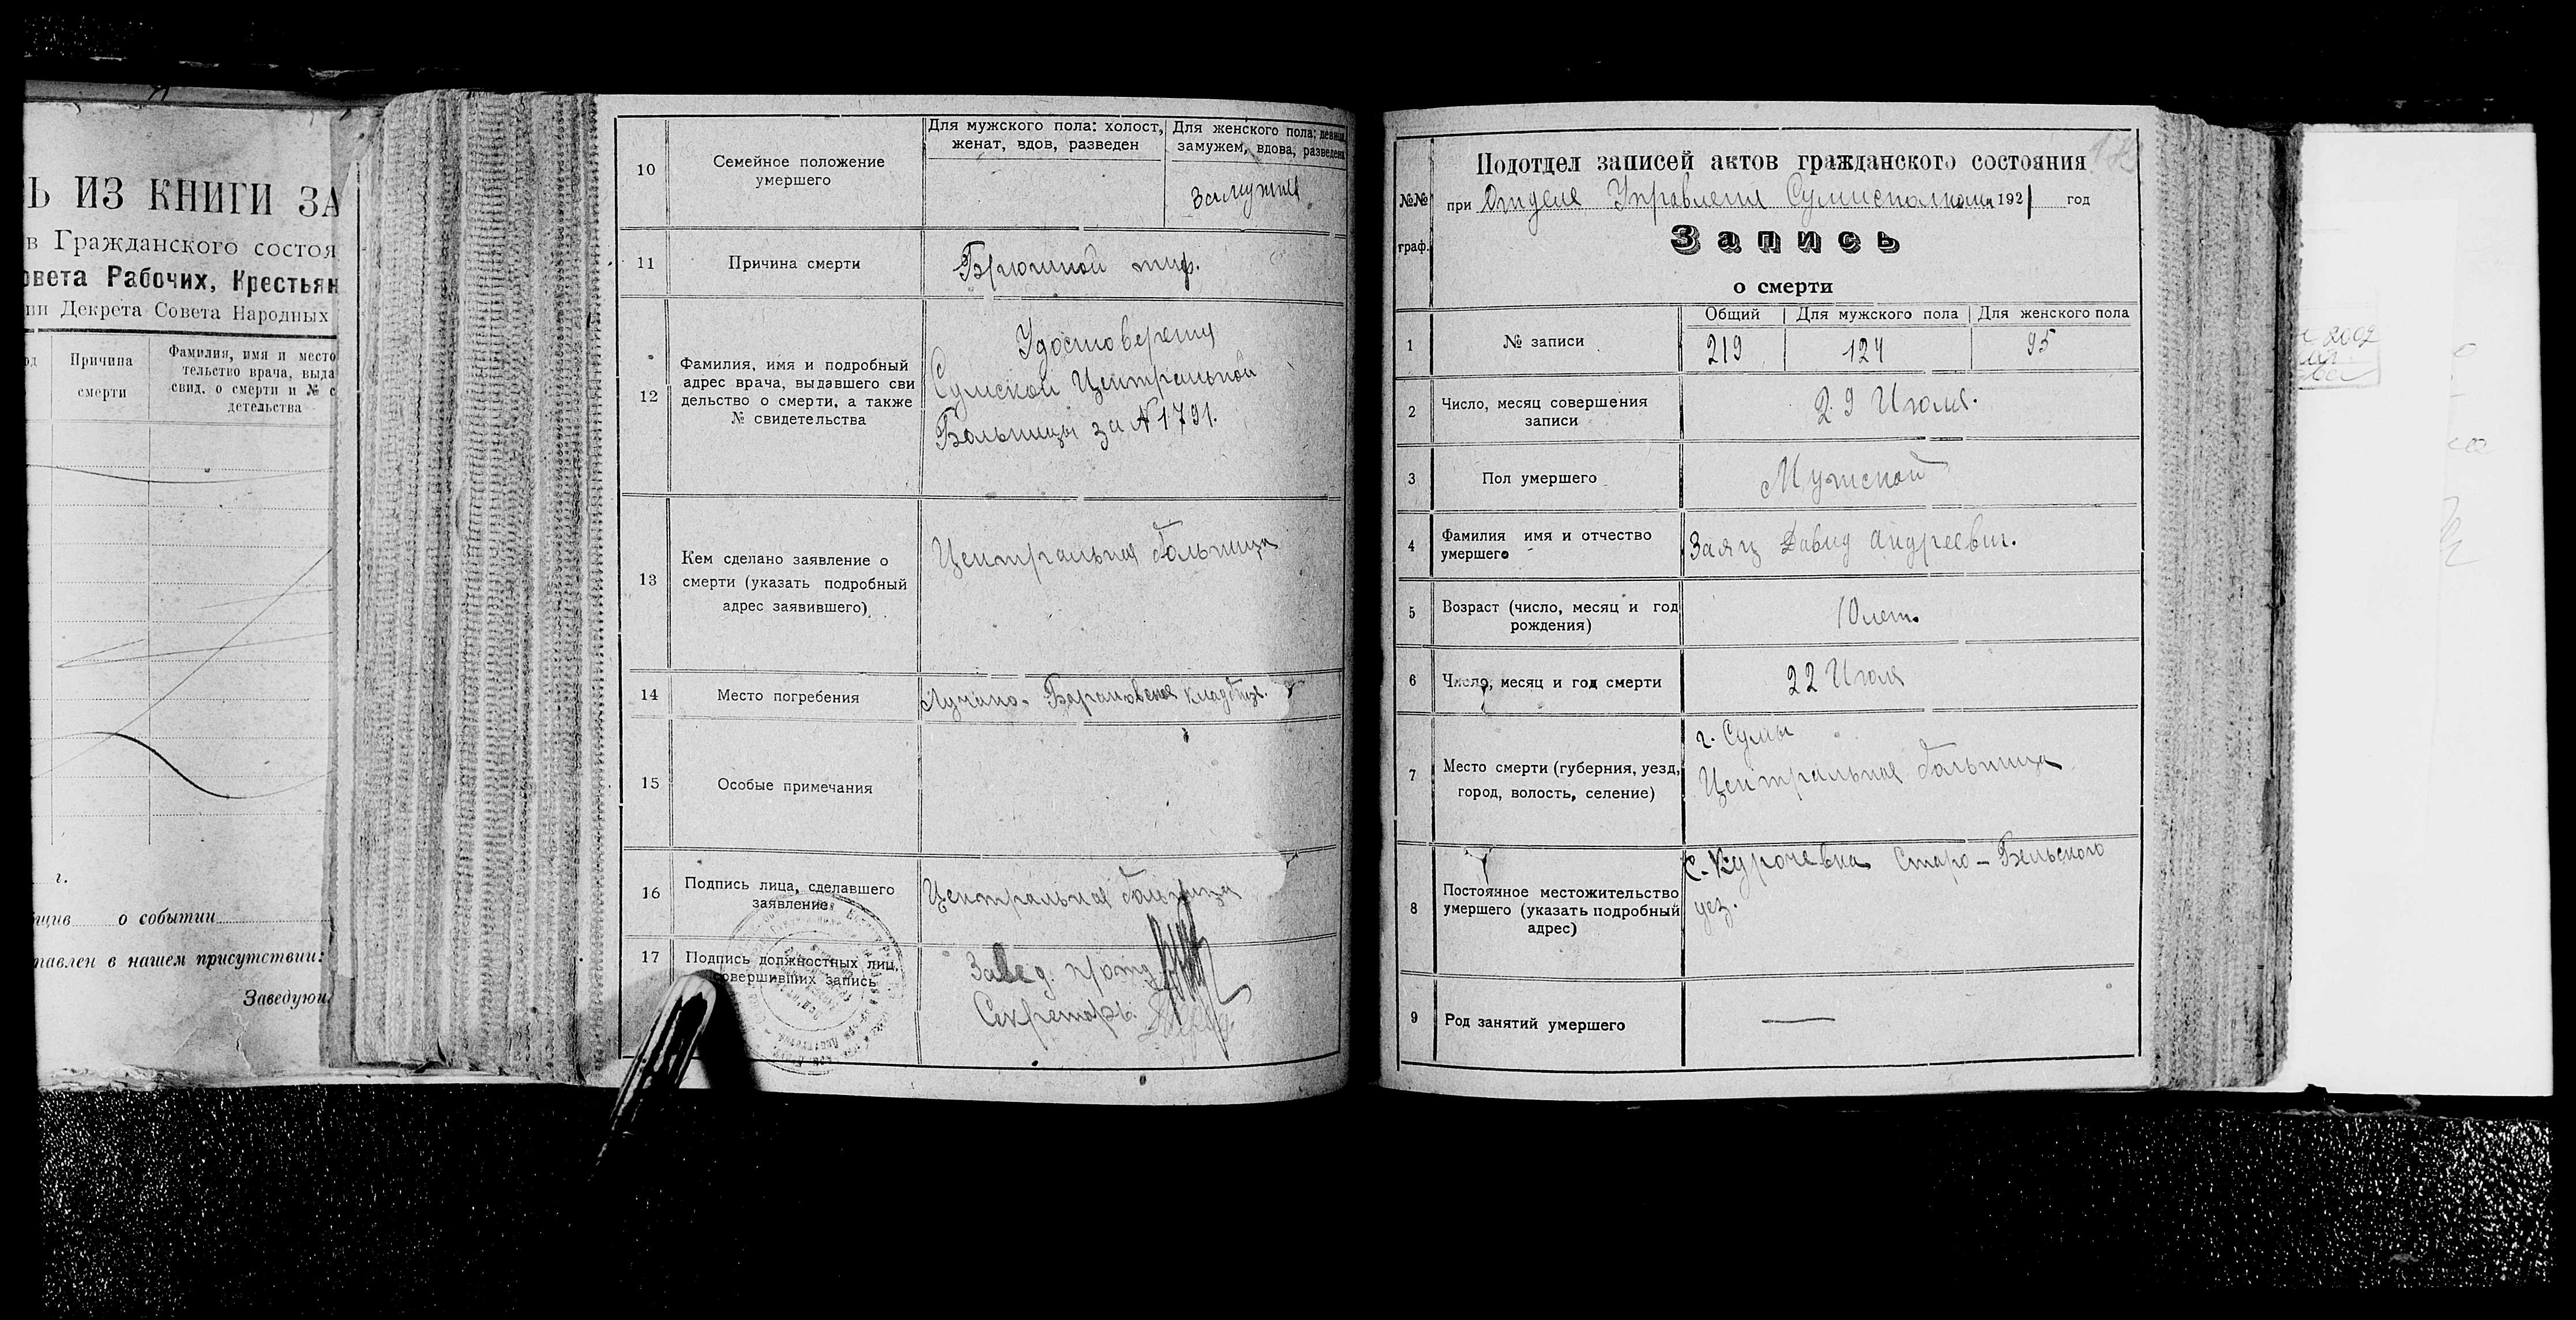 Ь ИЗ КНИГИ ЗА
в Гражданского состоя
овета Рабочих, Крестьян
ии Декрета Совета Народных
од
Причина
смерти
Фамилия, имя и место
тельство врача, выда
свид. о смерти и № с
детельства
г.
бщив о событии
тавлен в нашем присутствии:
Заведующ
10
Семейное положение
умершего
Для мужского пола: холост,
женат, вдов, разведен
Для женского пола; девица
замужем, вдова, разведена
Замужня
11
Причина смерти
Брюшной тиф.
12
Фамилия, имя и подробный
адрес врача, выдавшего сви
дельство о смерти, а также
№ свидетельства
Удостоверену
Сумской Центральной
Больницы за № 1791.
13
Кем сделано заявление о
смерти (указать подробный
адрес заявившего)
Центральная больница
14
Место погребения
Лучано-Барановское кладбище.
15
Особые примечания
16
Подпись лица, сделавшего
заявление
Центральная больница
17
Подпись должностных лиц,
совершивших запись
Завед. п/отд
Секретарь
№№
граф.
Подотдел записей актов гражданского состояния
при Отделе Управления Сумисполкома 1921 год
Запись
о смерти
1
№ записи
Общий
Для мужского пола
Для женского пола
219
124
95
2
Число, месяц совершения
записи
29 Июля.
3
Пол умершего
Мужской
4
Фамилия имя и отчество
умершего
Заяц Давид Андреевич.
5
Возраст (число, месяц и год
рождения)
10 лет.
6
Число, месяц и год смерти
22 Июля
7
Место смерти (губерния, уезд,
город, волость, селение)
г. Сумы
Центральная больница
8
Постоянное местожительство
умершего (указать подробный
адрес)
С. Курочевка Старо-Бельского
уез.
9
Род занятий умершего
—